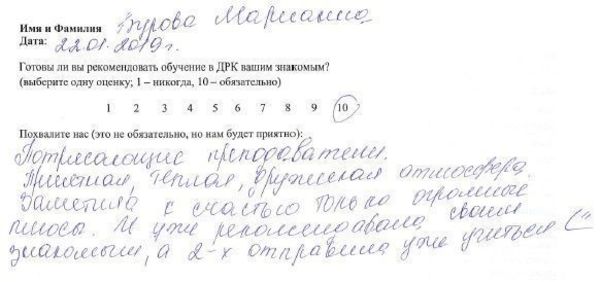 Имя и Фамилия Турова Марианна
Дата: 22.01.2019г.
Готовы ли вы рекомендовать обучение в ДРК вашим знакомым?
(выберите одну оценку; 1 – никогда, 10 – обязательно)
1 2 3 4 5 6 7 8 9 10
Похвалите нас (это не обязательно, но нам будет приятно):
Потрясающие преподаватели.
Приятная, теплая, дружеская атмосфера.
Заметила к счастью только огромные
плюсы. И уже рекомендовала своим
знакомым, а 2-х отправила уже учиться (¨